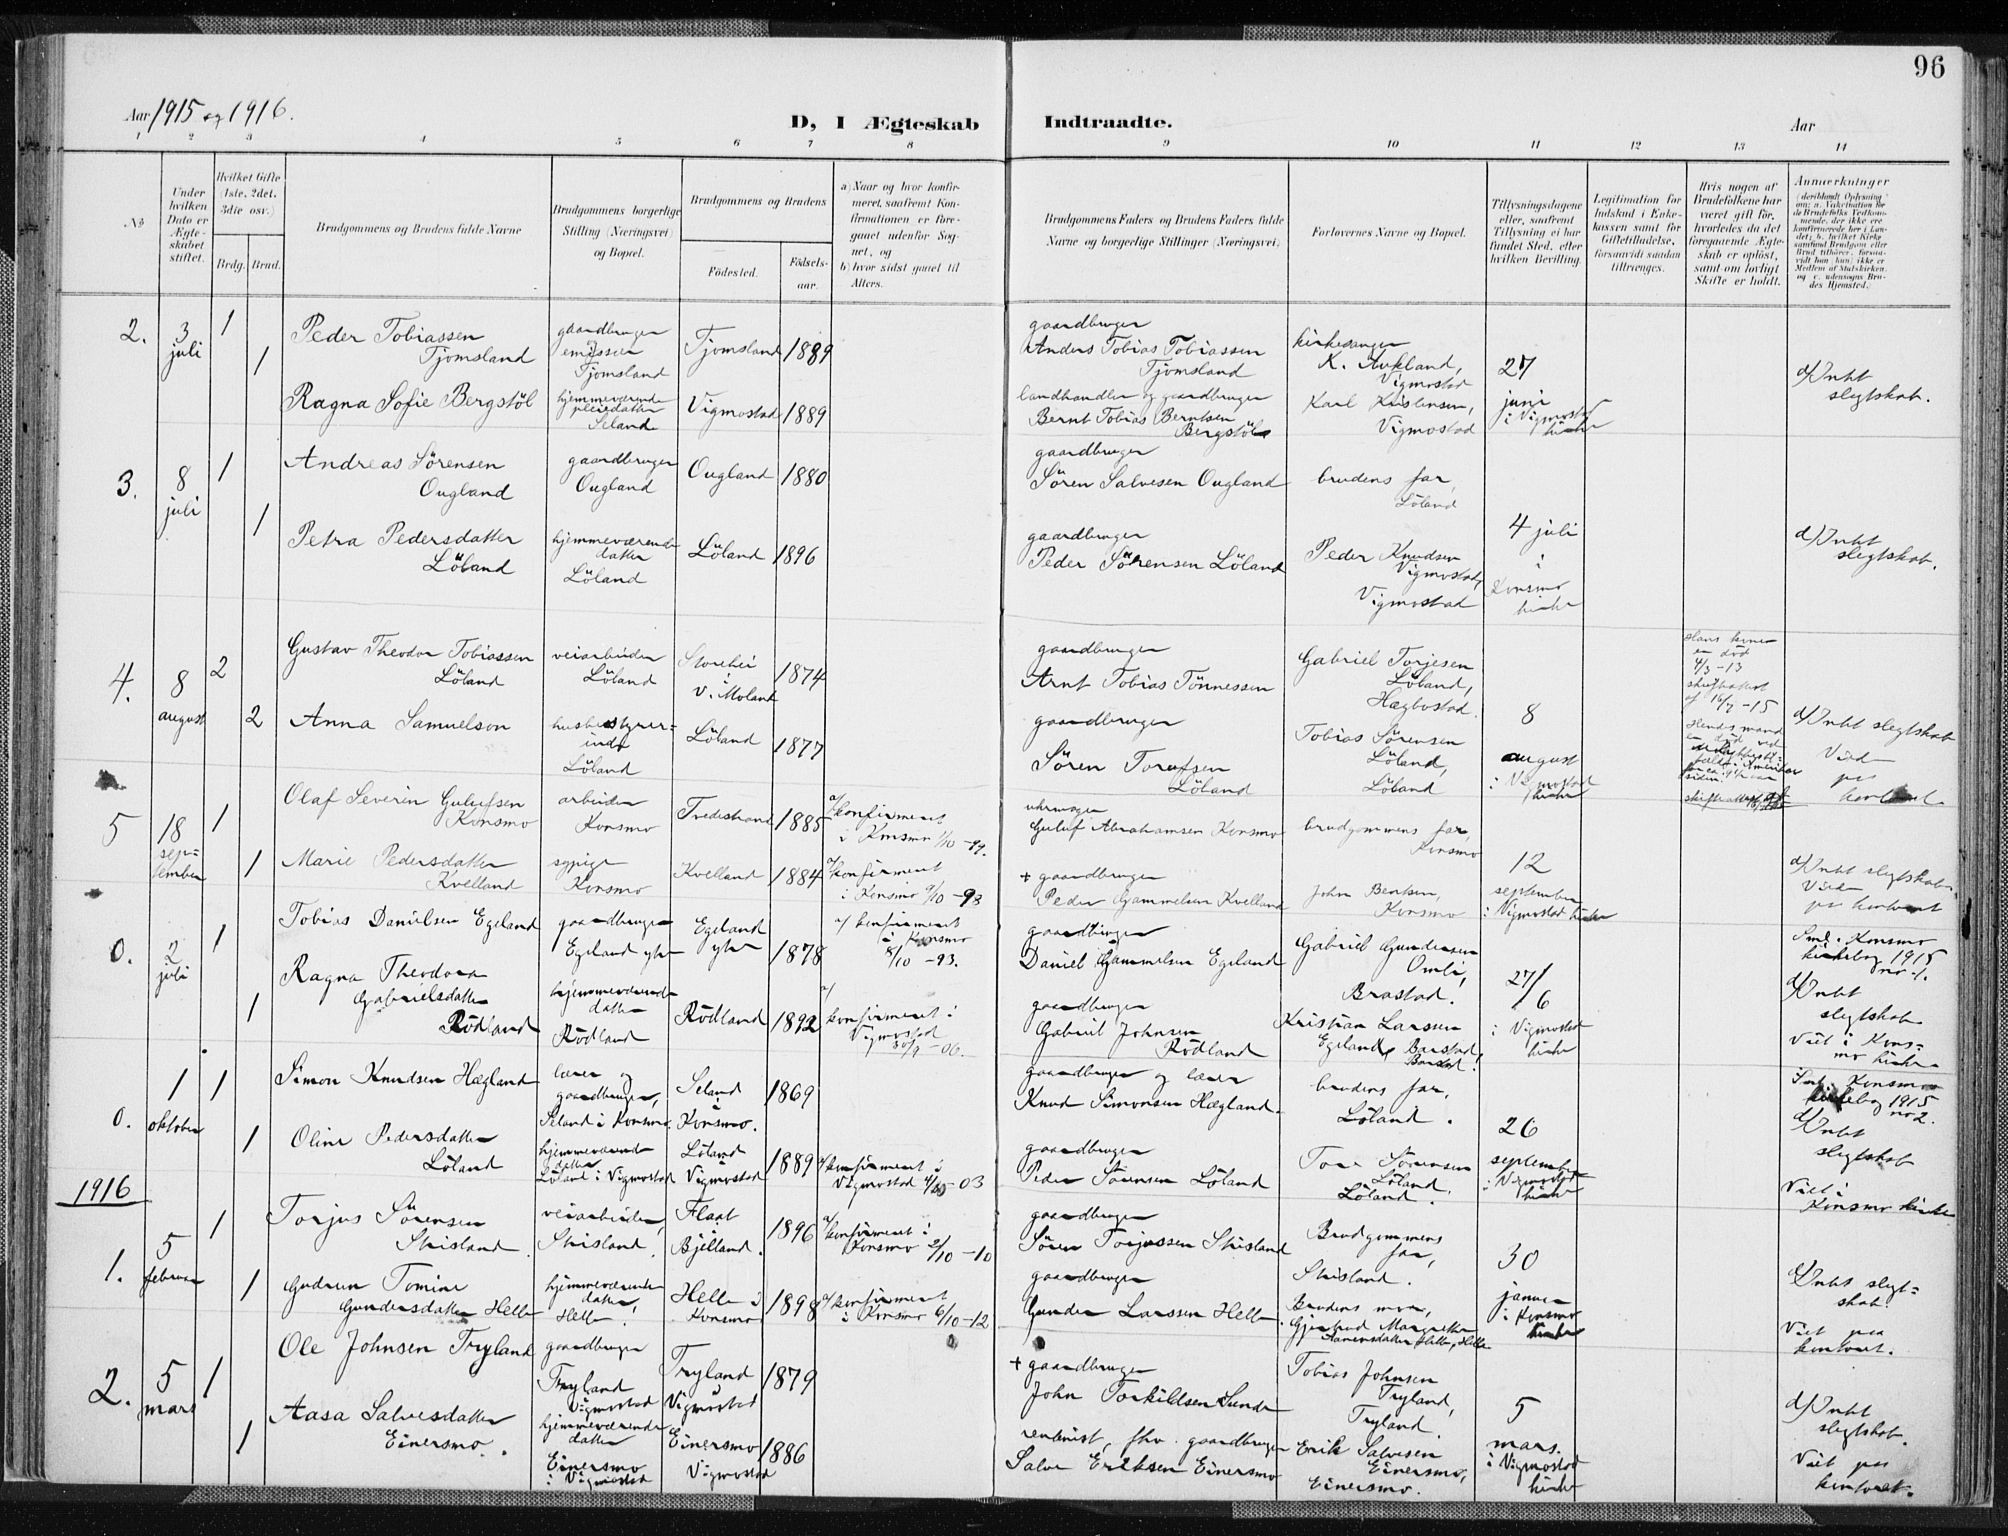 96
Aar 1915 og 1916.
D, I Ægteskab Indtraadte.
Aar
1 2 3 4 5 6 7 8 9 10 11 12 13 14
No
Under hvilken Dato er Ægteskabet stiftet.
Hvilket Gifte (1ste, 2det, 3die osv.)
Brdg. Brud.
Brudgommens og Brudens fulde Navne
Brudgommens borgerlige Stilling (Næringsvei) og Bopæl.
Brudgommens og Brudens
Fødested.
Fødselsaar.
a) Naar og hvor konfirmeret, saafremt Konfirmationen er foregaaet udenfor Sognet, og
b) hvor sidst gaaet til Alters.
Brudgommens Faders og Brudens Faders fulde Navne og borgerlige Stillinger (Næringsvei)
Forlovernes Navne og Bopæl.
Tillysningsdagene eller, saafremt Tillysning ei har fundet Sted, efter hvilken Bevilling.
Legitimation for Indskud i Enkekassen samt for Giftetilladelse, forsaavidt saadan tiltrænges.
Hvis nogen af Brudefolkene har været gift før, hvorledes da det foregaaende Ægteskab er opløst, samt om lovligt Skifte er holdt.
Anmerkninger
2.
3 juli
1
1
Peder Tobiassen
Tjomsland
gaardbruger
emissær
Tjomsland
Tjomsland
1889
gaardbruger
Anders Tobias Tobiassen
Tjomsland
kirkesanger
K. Aukland,
Vigmostad
27
juni
i Vigmostad
kirke
d/Intet
slegtskab.
Ragna Sofie Bergstöl
hjemmeværende
pleiedatter
Seland
Vigmostad
1889
landhandler og gaardbruger
Bernt Tobias Berntsen
Bergstöl
Karl Kristensen,
Vigmostad
3.
8
juli
1
1
Andreas Sørensen
Ougland
gaardbruger
Ougland
Ougland
1880
gaardbruger
Sören Salvesen Ougland
brudens far,
Löland
4 juli
i
Konsmo
kirke
d/Intet
slegtskab.
Petra Pedersdatter
Löland
hjemmeværende
datter
Löland
Löland
1896
gaardbruger
Peder Sörensen Löland
Peder Knudsen
Vigmostad,
Vigmostad
4.
8
august
2
2
Gustav Theodor Tobiassen
Löland
veiarbeider
Löland
Storehei
i
V. Moland
1874
gaardbruger
Arnt Tobias Tönnessen
Gabriel Torjesen
Löland,
Hægbostad.
8
august
i Vigmostad
kirke
Hans kone
er död
4/3-13
skifteattest
af 16/7-15
d/Intet slegtskab
Viet
paa
kontoret
Anna Samuelson
husbestyrer-
inde
Löland
Löland
1877
gaardbruger
Sören Torufsen
Löland
Tobias Sörensen
Löland,
Löland
Hendes mand
er död ved
5
18
sep-
tember
1
1
Olaf Severin Gulufsen
Konsmo
arbeider
Konsmo
Tvedestrand
1885
a/konfirmeret
i Konsmo
uhrmager
Guluf Abrahamsen Konsmo
brudgommens far,
Konsmo
12
september
i Vigmostad kirke
d/Intet slegtskab.
Viet
paa kontoret
Marie Pedersdatter
Kvelland
sypige
Konsmo
Kvelland
1884
a/konfirmeret
i Konsmo 9/10-98
+ gaardbruger
Peder Gammelsen Kvelland
John Bentsen,
Konsmo
0.
2
juli
1
1
Tobias Danielsen Egeland
gaardbruger
Egeland ytre
Egeland
ytre
1878
a/ konfirmeret
i Konsmo
8/10-93.
gaardbruger
Daniel Gammelsen Egeland
Gabriel Gundersen
Omli,
Brastad.
27/6
i Vigmostad
kirke
Sml. Konsmo
kirkebog 1915
no 1.
d/Intet
slegtskab
Viet i Kons-
mo kirke
Ragna Theodora
Gabrielsdatter
Rödland
hjemmeværende
datter
Rödland
Rödland
1892
a/
konfirmeret i
Vigmostad
30/9-06.
gaardbruger
Gabriel Johnsen
Rödland
Kristian Larsen
Egeland,
0.
1
oktober
1
1
Simon Knudsen Hægland
lærer og
gaardbruger,
Seland i Konsmo
Seland
i
Konsmo.
1869
gaardbruger og lærer
Knud Simonsen Hægland
brudens far,
Löland.
26
september
i Vigmostad
kirke
Sml. Konsmo
kirkebog 1915
no 2.
d/Intet
slegtskab
Viet i
Konsmo kirke
Oline Pedersdatter
Löland
hjemmeværende
datter
Löland i Vigmostad
Löland
i
Vigmostad
1889
a/konfirmeret i
Vigmostad 4/10-03
gaardbruger
Peder Sörensen Löland
Tore Sörensen
Löland,
Löland.
1916
1.
5
februar
1
1
Torjus Sörensen
Skisland.
veiarbeider,
Skisland.
Flaat
i
Bjelland.
1896
a/konfirmeret i
Konsmo 2/10-10
gaardbruger
Sören Torjussen Skisland
Brudgommens
far,
Skisland.
30
januar
i Konsmo
kirke
d/Intet slegt-
skab.
Viet paa
kontoret.
Gudrun Tomine
Gundersdatter Helle
hjemmeværende
datter,
Helle.
Helle i
Konsmo
1898
a/konfirmeret
i Konsmo 6/10-12
gaardbruger
Gunder Larssen Helle
Brudens mor,
Gjertrud Margrethe
Aanensdatter Helle, Helle
2.
5
mars
1
1
Ole Johnsen Tryland
gaardbruger
Tryland
i Vigmostad
Tryland
i
Vigmostad
1879
+ gaardbruger
John Torkildsen Sunde
Tobias Johnsen
Tryland,
Tryland.
5
mars.
i Vigmostad
kirke
d/Intet
slegtskab.
Viet paa
kontoret.
Aasa Salvesdatter
Einersmo.
hjemmeværende
datter
Einersmo
i Vigmostad
Einersmo
i
Vigmostad
1886
rentenist, fhv. gaardbruger
Salve Eriksen Einersmo
Erik Salvesen
Einersmo,
Einersmo.